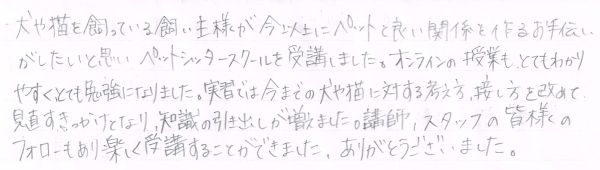 犬や猫を飼っている飼い主様が今以上にペットと良い関係を作るお手伝い
がしたいと思いペットシッタースクールを受講しました。オンラインの授業も、とてもわかり
やすくとても勉強になりました。実習では今までの犬や猫に対する考え方、接し方を改めて
見直すきっかけとなり、知識の引き出しが増えました。講師、スタッフの皆様の
フォローもあり楽しく受講することができました、ありがとうございました。